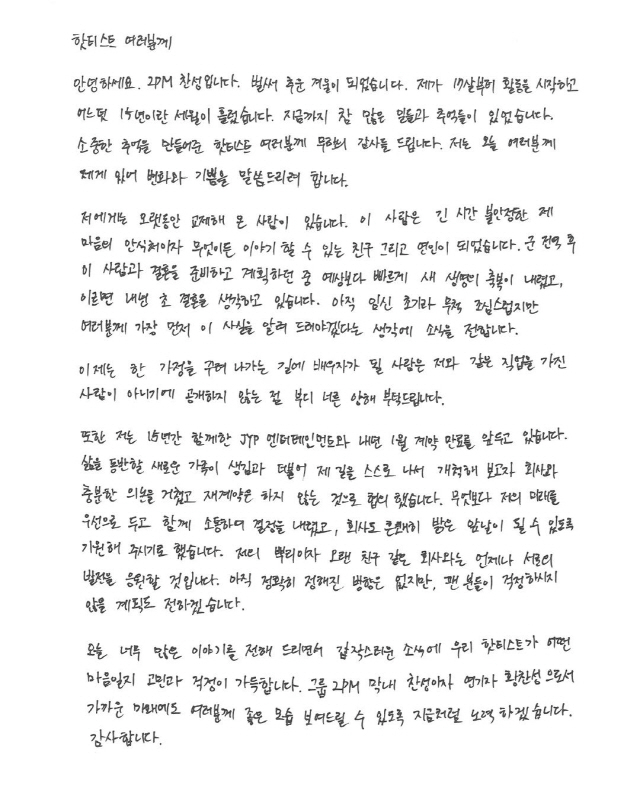 핫티스트 여러분께
안녕하세요. 2PM 찬성입니다. 벌써 추운 겨울이 되었습니다. 제가 17살부터 활동을 시작하고
어느덧 15년이란 세월이 흘렀습니다. 지금까지 참 많은 일들과 추억들이 있었습니다.
소중한 추억을 만들어준 핫티스트 여러분께 무한의 감사를 드립니다. 저는 오늘 여러분께
제게 있어 변화와 기쁨을 말씀드리려 합니다.
저에게는 오랫동안 교제해 온 사람이 있습니다. 이 사람은 긴 시간 불안정한 제
마음의 안식처이자 무엇이든 이야기 할 수 있는 친구 그리고 연인이 되었습니다. 군 전역 후
이 사람과 결혼을 준비하고 계획하던 중 예상보다 빠르게 새 생명의 축복이 내렸고,
이르면 내년 초 결혼을 생각하고 있습니다. 아직 임신 초기라 무척 조심스럽지만
여러분께 가장 먼저 이 사실을 알려 드려야겠다는 생각에 소식을 전합니다.
이제는 한 가정을 꾸려 나가는 길에 배우자가 될 사람은 저와 같은 직업을 가진
사람이 아니기에 공개하지 않는 점 부디 너른 양해 부탁드립니다.
또한 저는 15년간 함께한 JYP 엔터테인먼트와 내년 1월 계약 만료를 앞두고 있습니다.
삶을 동반할 새로운 가족이 생김과 더불어 제 길을 스스로 나서 개척해 보고자 회사와
충분한 의논을 거쳤고 재계약은 하지 않는 것으로 협의 했습니다. 무엇보다 저의 미래를
우선으로 두고 함께 소통하며 결정을 내렸고, 회사도 흔쾌히 밝은 앞날이 될 수 있도록
기원해 주시기로 했습니다. 저의 뿌리이자 오랜 친구 같은 회사와는 언제나 서로의
발전을 응원할 것입니다. 아직 정확히 정해진 방향은 없지만, 팬 분들이 걱정하시지
않을 계획도 전하겠습니다.
오늘 너무 많은 이야기를 전해 드리면서 갑작스러운 소식에 우리 핫티스트가 어떤
마음일지 고민과 걱정이 가득합니다. 그룹 2PM 막내 찬성이자 연기자 황찬성으로서
가까운 미래에도 여러분께 좋은 모습 보여드릴 수 있도록 지금처럼 노력하겠습니다.
감사합니다.